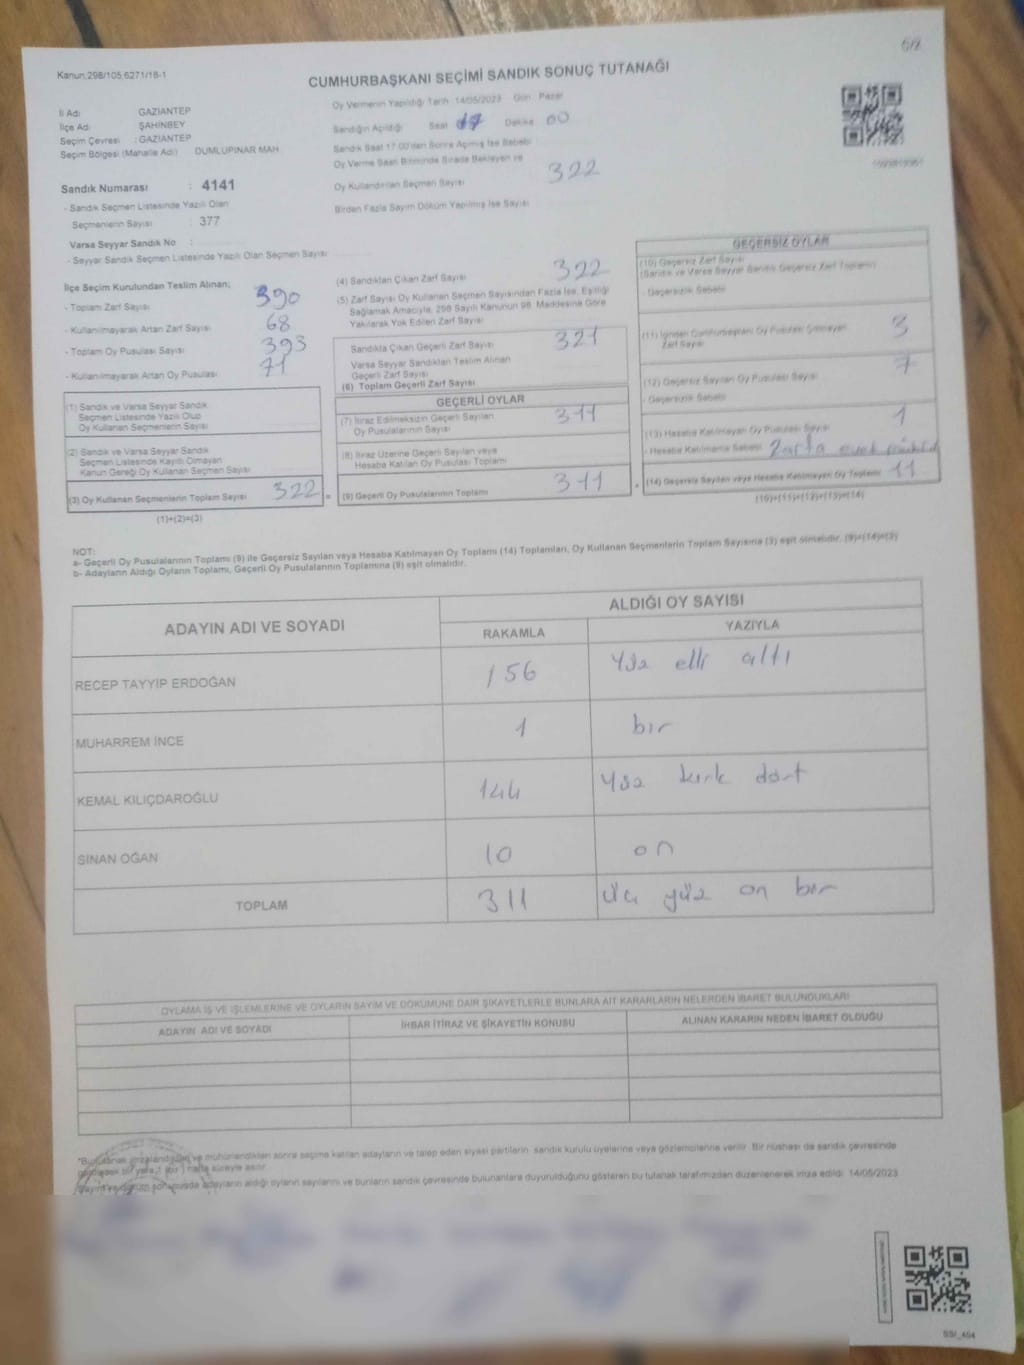 Kanun,298/105,6271/18-1
CUMHURBAŞKANI SEÇİMİ SANDIK SONUÇ TUTANAĞI
İl Adı GAZİANTEP
İlçe Adı ŞAHİNBEY
Seçim Çevresi : GAZİANTEP
Seçim Bölgesi (Mahalle Adı) DUMLUPINAR MAH.
Sandık Numarası : 4141
- Sandık Seçmen Listesinde Yazılı Olan
Seçmenlerin Sayısı : 377
Varsa Seyyar Sandık No :
- Seyyar Sandık Seçmen Listesinde Yazılı Olan Seçmen Sayısı
Oy Vermenin Yapıldığı Tarih :14/05/2023 Gün: Pazar
Sandığın Açıldığı Saat 17 Dakika 00
Sandık Saat 17.00'dan Sonra Açılmış İse Sebebi
Oy Verme Saati Bitiminde Sırada Bekleyen ve
Oy Kullandırılan Seçmen Sayısı 322
Birden Fazla Sayım Döküm Yapılmış İse Sayısı
İlçe Seçim Kurulundan Teslim Alınan;
- Toplam Zarf Sayısı 390
- Kullanılmayarak Artan Zarf Sayısı 68
- Toplam Oy Pusulası Sayısı 393
- Kullanılmayarak Artan Oy Pusulası 71
(1) Sandık ve Varsa Seyyar Sandık
Seçmen Listesinde Yazılı Olup
Oy Kullanan Seçmenlerin Sayısı
(2) Sandık ve Varsa Seyyar Sandık
Seçmen Listesinde Kayıtlı Olmayan
Kanun Gereği Oy Kullanan Seçmen Sayısı
(3) Oy Kullanan Seçmenlerin Toplam Sayısı 322 =
(1)+(2)=(3)
(4) Sandıktan Çıkan Zarf Sayısı 322
(5) Zarf Sayısı Oy Kullanan Seçmen Sayısından Fazla İse, Eşitliği
Sağlamak Amacıyla, 298 Sayılı Kanunun 98. Maddesine Göre
Yakılarak Yok Edilen Zarf Sayısı
Sandıkta Çıkan Geçerli Zarf Sayısı 321
Varsa Seyyar Sandıktan Teslim Alınan
Geçerli Zarf Sayısı
(6) Toplam Geçerli Zarf Sayısı
GEÇERLİ OYLAR
(7) İtiraz Edilmeksizin Geçerli Sayılan
Oy Pusulalarının Sayısı 311
(8) İtiraz Üzerine Geçerli Sayılan veya
Hesaba Katılan Oy Pusulası Toplamı
(9) Geçerli Oy Pusulalarının Toplamı 311 +
GEÇERSİZ OYLAR
(10) Geçersiz Zarf Sayısı
(Sandık ve Varsa Seyyar Sandık Geçersiz Zarf Toplamı)
- Geçersizlik Sebebi
(11) İçinden Cumhurbaşkanı Oy Pusulası Çıkmayan
Zarf Sayısı 3
(12) Geçersiz Sayılan Oy Pusulası Sayısı 7
- Geçersizlik Sebebi
(13) Hesaba Katılmayan Oy Pusulası Sayısı 1
- Hesaba Katılmama Sebebi Zarfta
(14) Geçersiz Sayılan veya Hesaba Katılmayan Oy Toplamı 11
(10)+(11)+(12)+(13)=(14)
NOT:
a- Geçerli Oy Pusulalarının Toplamı (9) ile Geçersiz Sayılan veya Hesaba Katılmayan Oy Toplamı (14) Toplamları, Oy Kullanan Seçmenlerin Toplam Sayısına (3) eşit olmalıdır. (9)+(14)=(3)
b- Adayların Aldığı Oyların Toplamı, Geçerli Oy Pusulalarının Toplamına (9) eşit olmalıdır.
ADAYIN ADI VE SOYADI ALDIĞI OY SAYISI
RAKAMLA YAZIYLA
RECEP TAYYİP ERDOĞAN 156 Yüz elli altı
MUHARREM İNCE 1 bir
KEMAL KILIÇDAROĞLU 144 Yüz kırk dört
SİNAN OĞAN 10 on
TOPLAM 311 üç yüz on bir
OYLAMA İŞ VE İŞLEMLERİNE VE OYLARIN SAYIM VE DÖKÜMÜNE DAİR ŞİKAYETLERLE BUNLARA AİT KARARLARIN NELERDEN İBARET BULUNDUKLARI
ADAYIN ADI VE SOYADI İHBAR İTİRAZ VE ŞİKAYETİN KONUSU ALINAN KARARIN NEDEN İBARET OLDUĞU
*Bu tutanak imzalandıktan ve mühürlendikten sonra seçime katılan adayların ve talep eden siyasi partilerin sandık kurulu üyelerine veya gözlemcilerine verilir. Bir nüshası da sandık çevresinde
görülecek bir yere 1 (bir) hafta süreyle asılır.
Sayım ve döküm sonucunda adayların aldığı oyların sayılarını ve bunların sandık çevresinde bulunanlara duyurulduğunu gösteren bu tutanak tarafımızdan düzenlenerek imza edildi. 14/05/2023